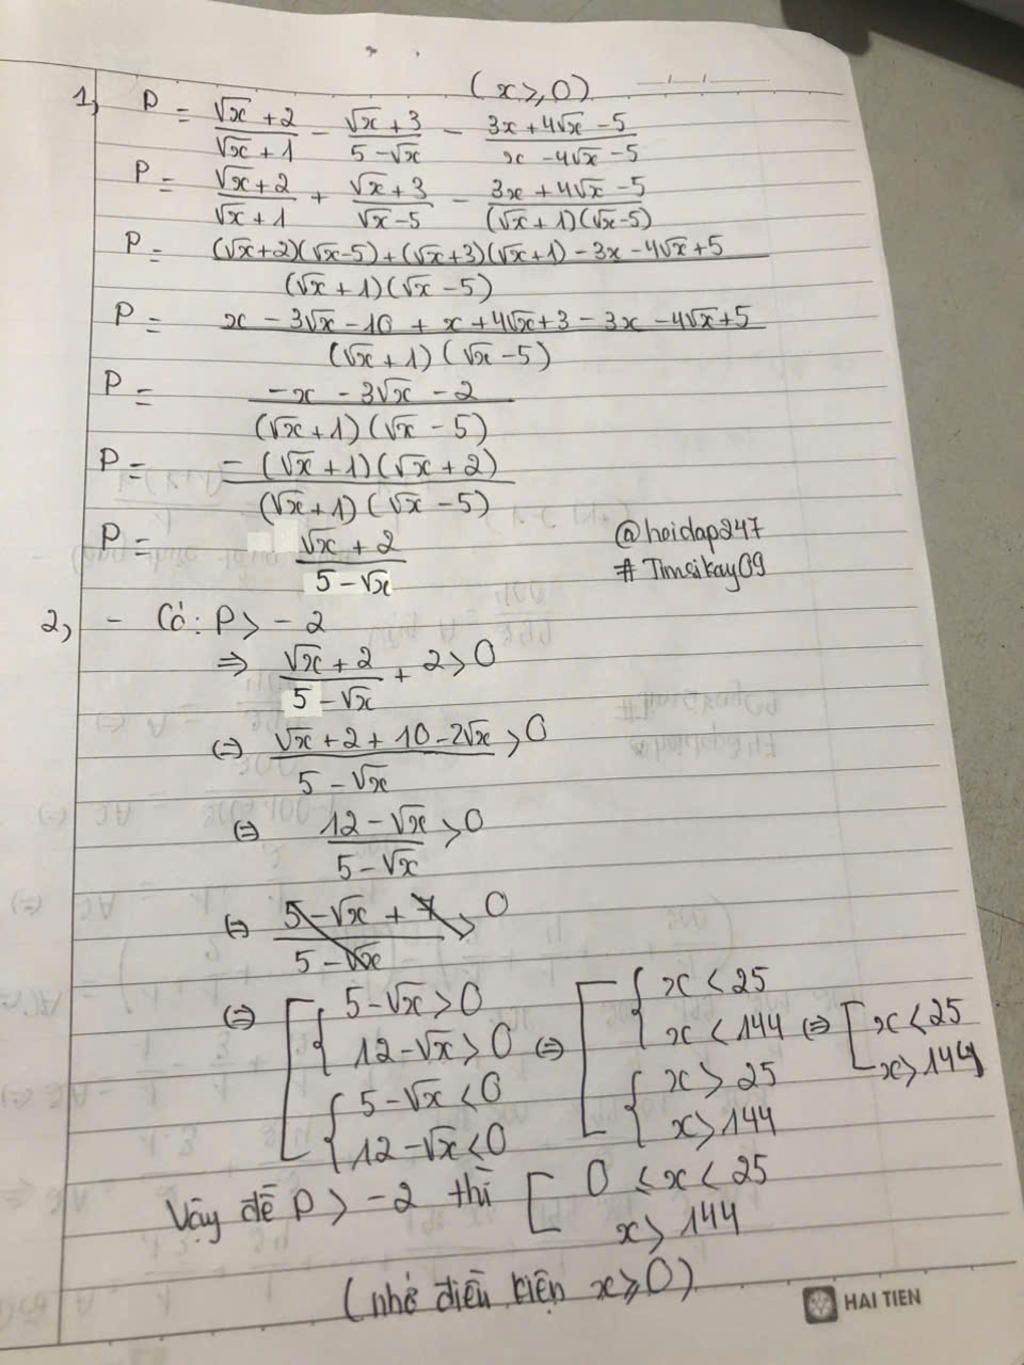 (x ≥ 0)
1) P = (√x + 2)/(√x + 1) - (√x + 3)/(5 - √x) - (3x + 4√x - 5)/(x - 4√x - 5)
P = (√x + 2)/(√x + 1) + (√x + 3)/(√x - 5) - (3x + 4√x - 5)/((√x + 1)(√x - 5))
P = ((√x + 2)(√x - 5) + (√x + 3)(√x + 1) - 3x - 4√x + 5)/((√x + 1)(√x - 5))
P = (x - 3√x - 10 + x + 4√x + 3 - 3x - 4√x + 5)/((√x + 1)(√x - 5))
P = (-x - 3√x - 2)/((√x + 1)(√x - 5))
P = (-(√x + 1)(√x + 2))/((√x + 1)(√x - 5))
P = (√x + 2)/(5 - √x)
@hoidap247
# Timsikay09
2, - Có: P > -2
⇒ (√x + 2)/(5 - √x) + 2 > 0
(=) (√x + 2 + 10 - 2√x)/(5 - √x) > 0
(=) (12 - √x)/(5 - √x) > 0
(=) (5 - √x + 7)/(5 - √x) > 0
(=) [ { 5 - √x > 0
12 - √x > 0
{ 5 - √x < 0
12 - √x < 0
(=) [ { x < 25
x < 144
{ x > 25
x > 144
(=) [ x < 25
x > 144
Vậy để P > -2 thì [ 0 ≤ x < 25
x > 144
(nhớ điều kiện x ≥ 0)
HAI TIEN